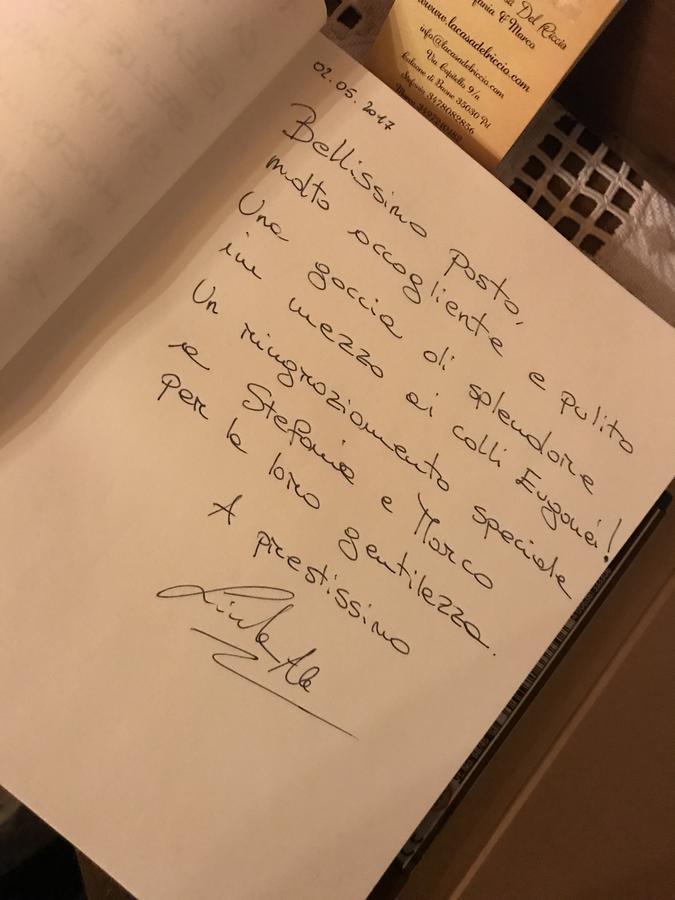 Del Riccio
& Marco
www.lacasadelriccio.com
info@lacasadelriccio.com
Via Capitello 9/a
Calaone di Baone 35030 Pd
Stefania 3478082856
02.05.2017
Bellissimo posto,
molto accogliente e pulito
Una goccia di splendore
in mezzo ai colli Euganei!
Un ringraziamento speciale
a Stefania e Marco
per la loro gentilezza.
A prestissimo